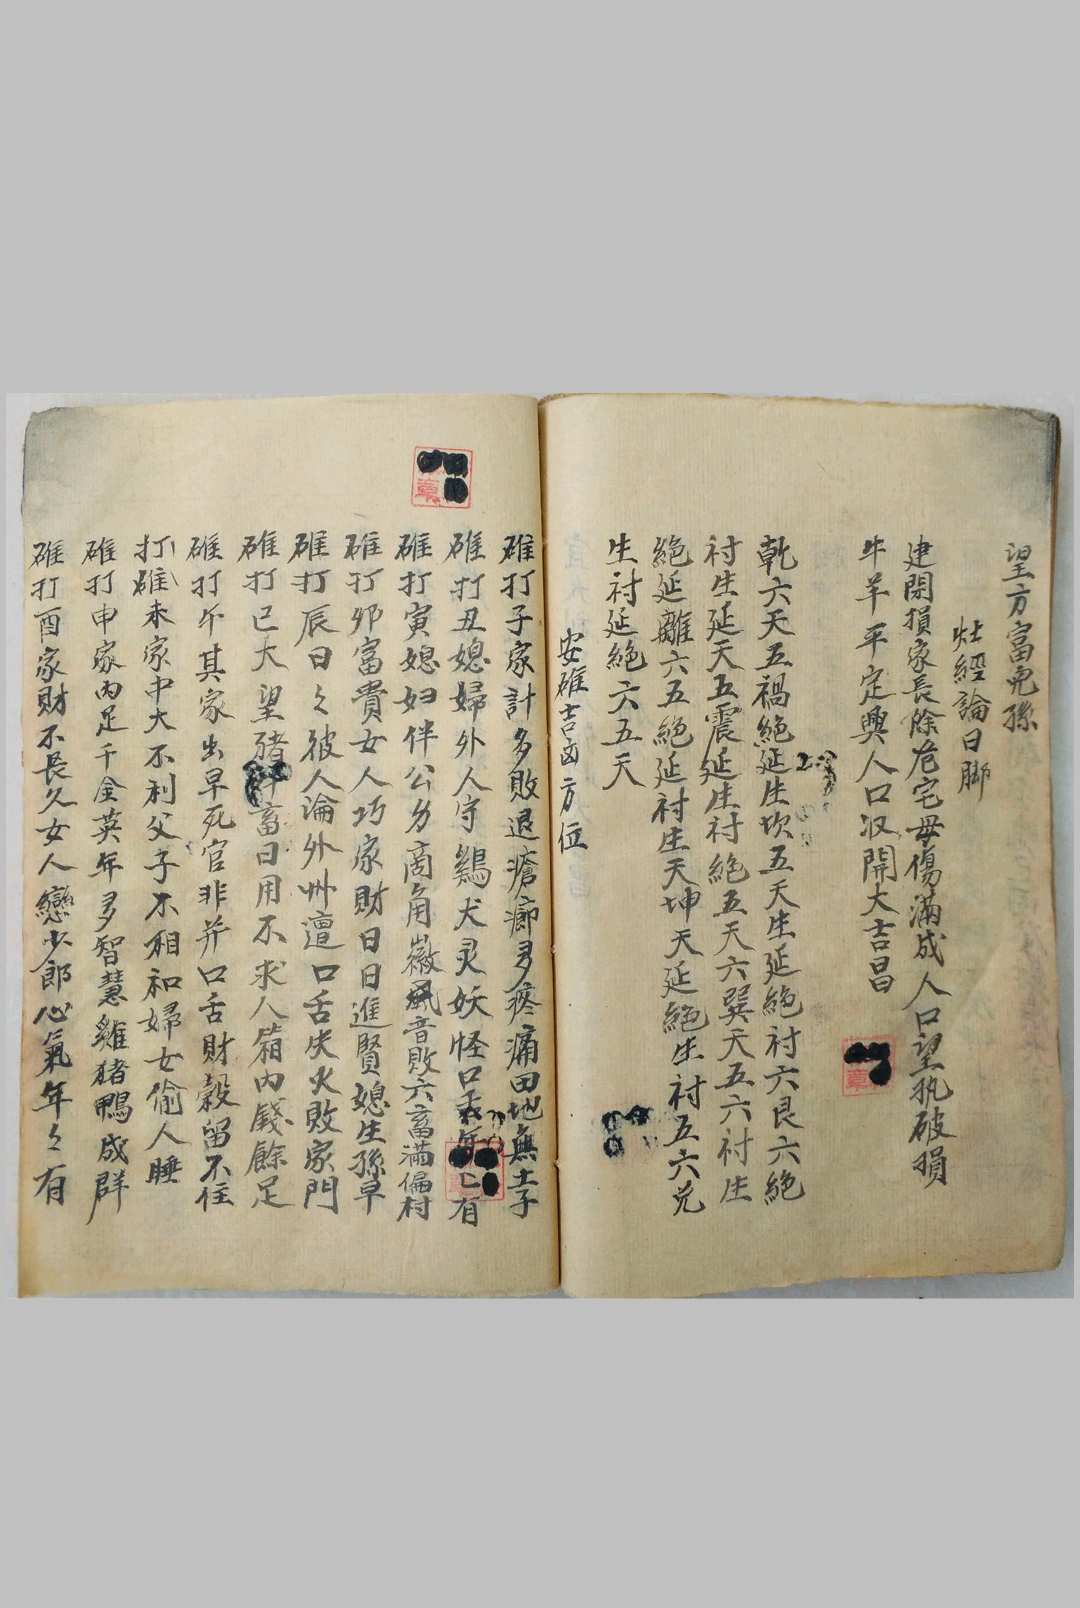 望方富宪孫
灶經論日脚
建閉損家長除危宅母傷滿成人口望执破損
牛羊平定興人口収開大吉昌
乾六天五禍絶延生坎五天生延絶衬六艮六絶
衬生延天五震延生衬絶五天六巽天五六衬生
絶延離六五絶延衬生天坤天延絶生衬五六兑
生衬延絶六五天
安碓吉凶方位
碓打子家計多敗退瘡癤多疼痛田地無土子
碓打丑媳婦外人守鷄犬灵妖怪口
有
碓打寅媳妇伴公另商角徵音敗六畜滿偏村
碓打卯富貴女人巧家財日日進賢媳生孫早
碓打辰日々彼人淪外州遭口舌失火敗家門
碓打巳大望豬畜日用不求人箱内錢餘足
碓打午其家出早死官非并口舌財穀留不住
打碓未家中大不利父子不相和婦女偷人睡
碓打申家内足千金英年多智慧雞猪鴨成群
碓打酉家財不長久女人戀少郎心氣年々有
章
章